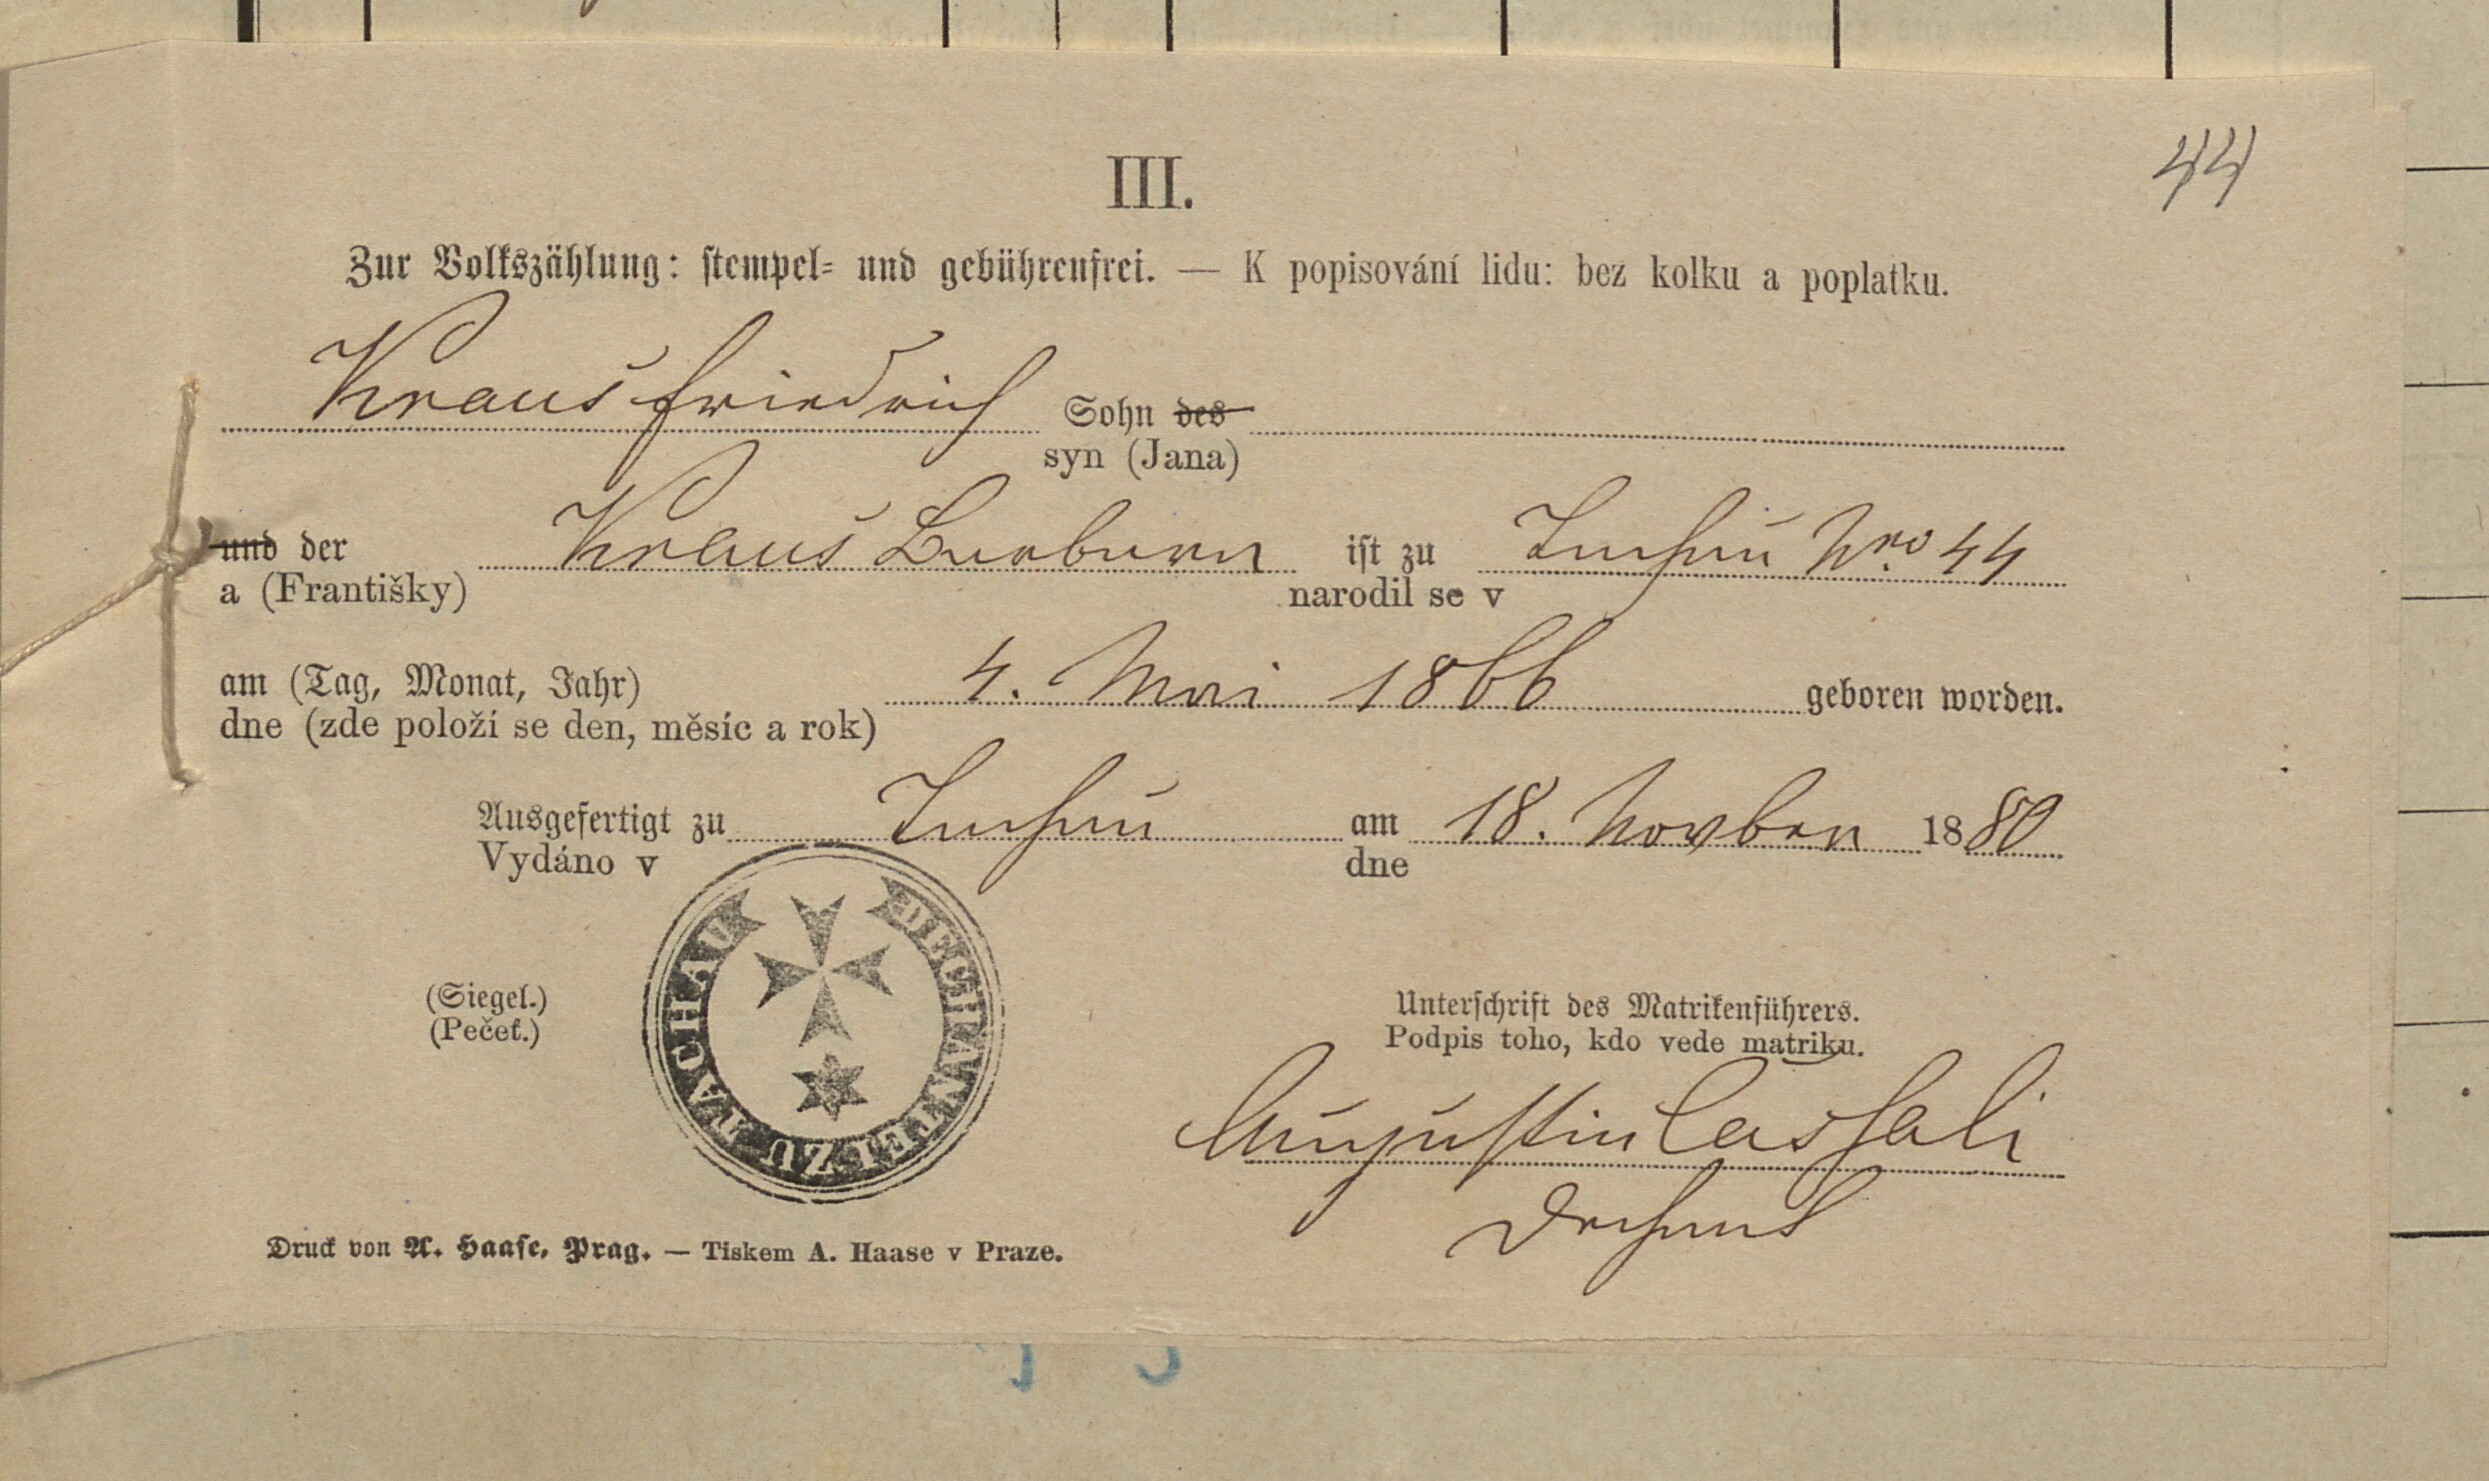 44
III.
Zur Volkszählung: stempel- und gebührenfrei. — K popisování lidu: bez kolku a poplatku.
Kraus Friedrich Sohn des
syn (Jana)
und der Kraus Barbara ist zu Tachau Nro 44
a (Františky) narodil se v
am (Tag, Monat, Jahr) 4. Mai 1866 geboren worden.
dne (zde položí se den, měsíc a rok)
Ausgefertigt zu Tachau am 18. Novber 1880
Vydáno v dne
DECHANTEI ZU TACHAU
(Siegel.)
(Pečeť.)
Unterschrift des Matrikenführers.
Podpis toho, kdo vede matriku.
Augustin
Dechant
Druck von A. Haase, Prag. — Tiskem A. Haase v Praze.